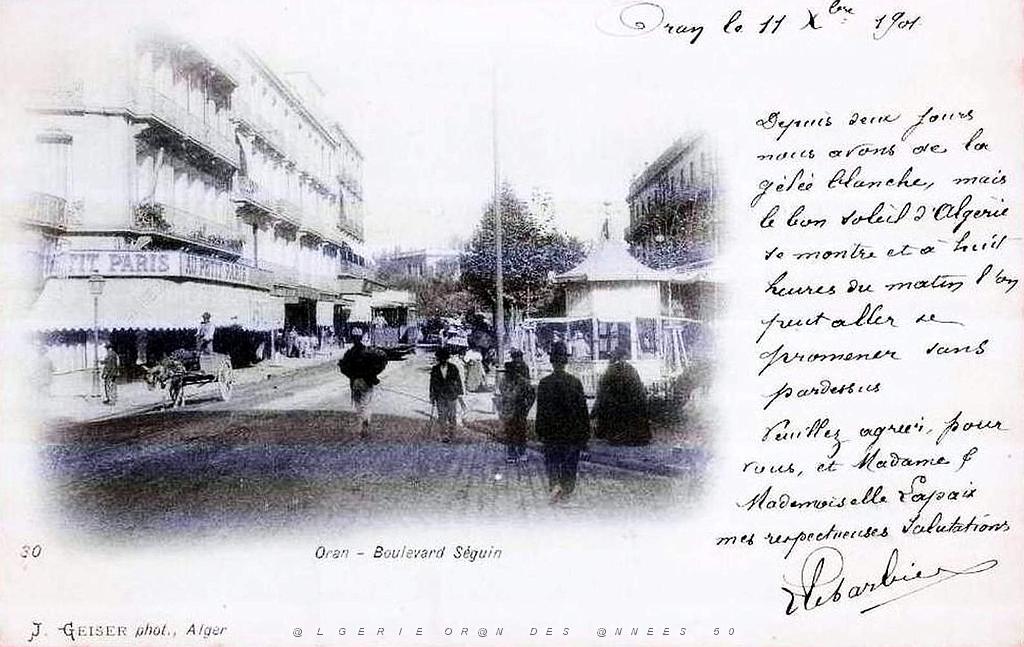 Oran le 11 Xbre 1901
Depuis deux jours
nous avons de la
gelée blanche, mais
le bon soleil d'Algérie
se montre et à huit
heures du matin l'on
peut aller se
promener sans
pardessus
Veuillez agréer, pour
vous, et Madame &
Mademoiselle Lapaix
mes respectueuses salutations
Lebarbier
TIT PARIS AU PETIT PARIS
30
Oran - Boulevard Séguin
J. GEISER phot., Alger
@ L G E R I E O R @ N D E S @ N N E E S 5 0